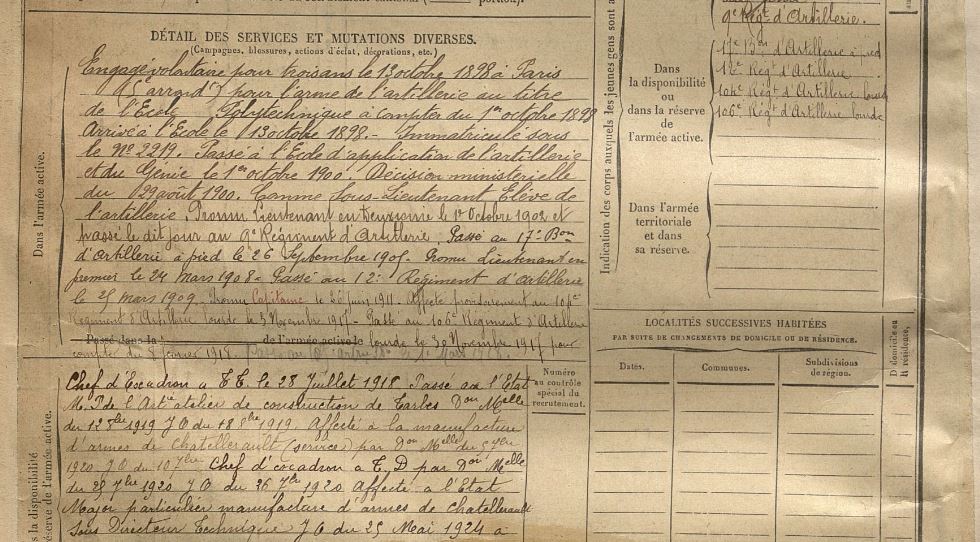 DÉTAIL DES SERVICES ET MUTATIONS DIVERSES.
(Campagnes, blessures, actions d'éclat, décorations, etc.)
Dans l'armée active.
Engagé volontaire pour trois ans le 13 octobre 1898 à Paris
(5e arrondt) pour l'arme de l'artillerie au titre
de l'Ecole Polytechnique à compter du 1er octobre 1898
Arrivé à l'Ecole le 13 octobre 1898.- Immatriculé sous
le No 2219. Passé à l'Ecole d'application de l'artillerie
et du Génie le 1er octobre 1900. Décision ministérielle
du 29 août 1900. Comme Sous-Lieutenant Elève de
l'artillerie. Promu Lieutenant en Deuxième le 1er Octobre 1902 et
passé le dit jour au 9e Régiment d'Artillerie. Passé au 17e Bon
d'artillerie à pied le 26 Septembre 1905. Promu Lieutenant en
premier le 24 Mars 1908- Passé au 12e Régiment d'artillerie
le 25 Mars 1909. Promu Capitaine le juin 1911. Affecté provisoirement au 104e
Régiment d'Artillerie lourde le 5 Novembre 1915- Passé au 106e Régiment d'Artillerie
Passé dans la de l'armée active le lourde le 30 Novembre 1917 pour
compter du 8 février 1918.
Chef d'Escadron a T.T. le 28 Juillet 1918 Passe en l'Etat
M. P de l'Artie atelier de construction de Tarbes Don Melle
du 12 8bre 1919 JO du 18 8bre 1919. Affecté à la manufacture
d'armes de Chatellerault (service) par Don Melle du
1920 JO du 10 7bre Chef d'escadron a T. D par Don Melle
du 25 7bre 1920 JO du 26 7bre 1920 Affecté a l'Etat
Major particulier manufacture d'armes de Chatellerault
Sous Directeur Technique JO du 25 Mai 1924 a
la disponibilité
réserve de l'armée active.
Numéro
au contrôle
spécial du
recrutement.
Indication des corps auxquels les jeunes gens sont a
9e Régt d'Artillerie.
Dans
la disponibilité
ou
dans la réserve
de l'armée active.
17e Bon d'Artillerie à pied
12e Régt d'Artillerie
104e Régt d'Artillerie lourde
106e Régt d'Artillerie lourde
Dans l'armée
territoriale
et dans
sa réserve.
LOCALITÉS SUCCESSIVES HABITÉES
PAR SUITE DE CHANGEMENTS DE DOMICILE OU DE RÉSIDENCE.
Dates.
Communes.
Subdivisions
de région.
D domicile ou
R résidence.